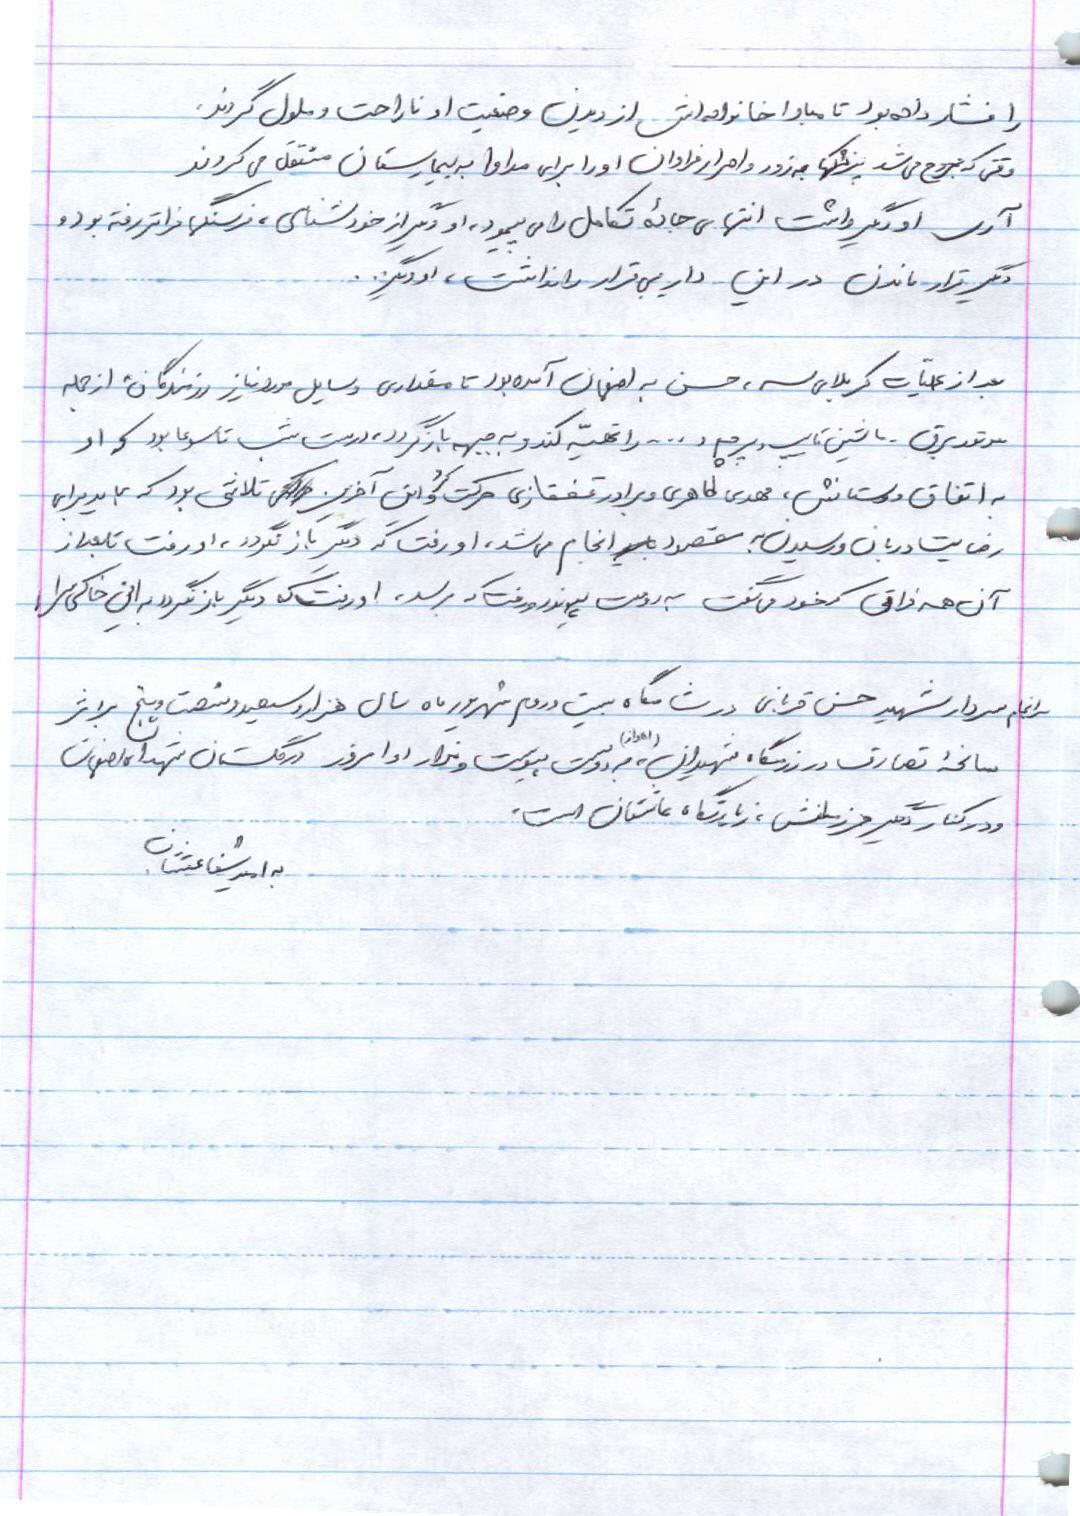 را فشار داده بود تا مبادا خانواده‌اش از دیدن وضعیت او ناراحت و ملول گردند.
وقتی که مجروح می‌شد پزشکها به زور و اصرار فراوان او را برای مداوا به بیمارستان منتقل می‌کردند
آری او دیگر داشت انتهای جادهٔ تکامل را می پیمود، او دیگر از خودشناسی، فرسنگها فراتر رفته بود و
دیگر قرار ماندن در این دار بی‌قرار را نداشت، او دیگر..
بعد از عملیات کربلای سه، حسن به اصفهان آمده بود تا مقداری وسایل مورد نیاز رزمندگان از جمله
موتور برق - ماشین تایپ و پرچم و .... را تهیّه کند و به جبهه بازگردد، درست شب تاسوعا بود که او
به اتفاق دوستانش، مهدی طاهری و برادر قفقازی حرکت کرد این آخرین تلاشی بود که باید برای
رضایت دربان و رسیدن به مقصود انجام می‌شد، او رفت که دیگر باز نگردد، او رفت تا بعد از
آن همه فراقی که خود می‌گفت به دوست بپیوندد و رفت که برسد، او رفت که دیگر باز نگردد به این خاکی سرا،
سرانجام سردار شهید حسن قربانی در شامگاه بیست و دوم شهریور ماه سال هزار و سیصد و شصت و پنج بر اثر
سانحهٔ تصادف در نزدیکی (اهواز) به دوست پیوست و مزار او امروز در گلستان شهدای اصفهان
و در کنار دیگر همرزمانش، زیارتگاه عاشقان است.
به امید شفاعتشان